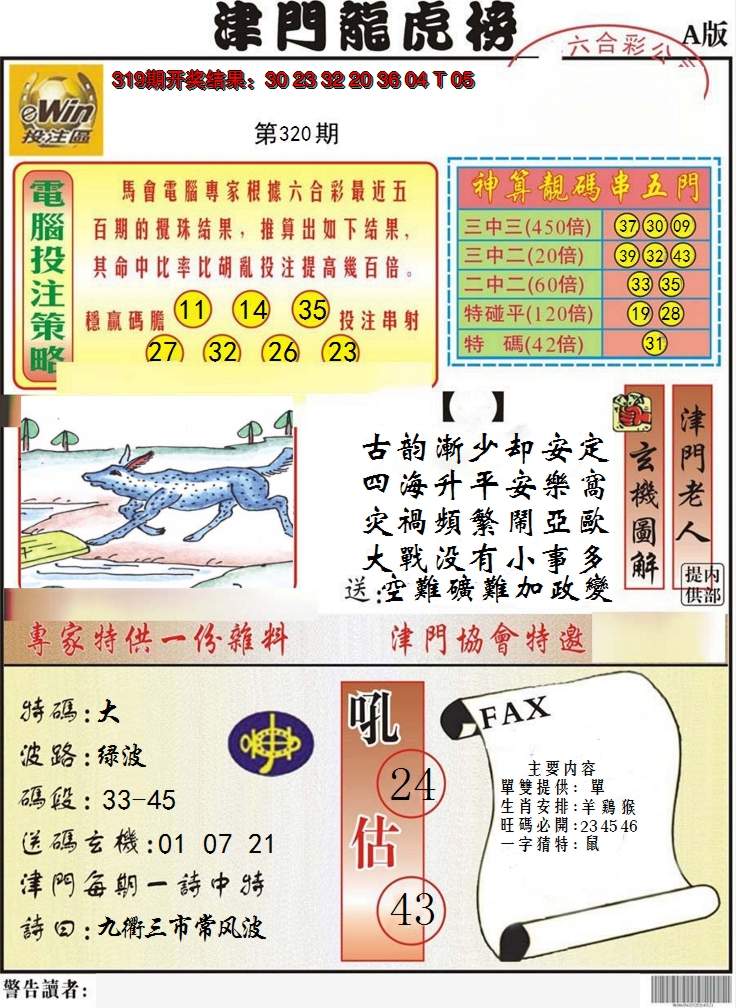 津門龍虎榜
A版
六合彩公
319期开奖结果：30 23 32 20 36 04 T 05
eWin
投注區
第320期
電腦投注策略
馬會電腦專家根據六合彩最近五
百期的攪珠结果，推算出如下结果，
其命中比率比胡亂投注提高幾百倍。
穩贏碼膽 11 14 35 投注串射
27 32 26 23
神算靚碼串五門
三中三(450倍) 37 30 09
三中二(20倍) 39 32 43
二中二(60倍) 33 35
特碰平(120倍) 19 28
特 碼(42倍) 31
【 】
古韵漸少却安定
四海升平安樂窩
灾禍頻繁鬧亞歐
大戰没有小事多
送:空難礦難加政變
玄機圖解
津門老人
内部提供
專家特供一份雜料
津門協會特邀
特碼:大
波路:绿波
碼段:33-45
送碼玄機:01 07 21
津門每期一詩中特
詩曰:九衢三市常风波
吼
24
估
43
FAX
主要内容
單雙提供：單
生肖安排:羊鷄猴
旺碼必開:23 45 46
一字猜特:鼠
警告讀者: